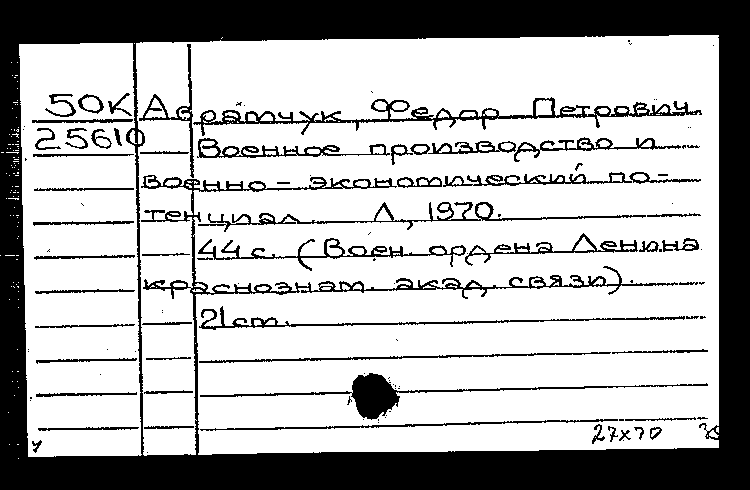 50К Авратчук, Федор Петрович
25610 Военное производство и
военно-экономический по-
тенциал. Л., 1970.
44 с. (Воен. ордена Ленина
краснознам. акад. связи).
21 см.
27х70